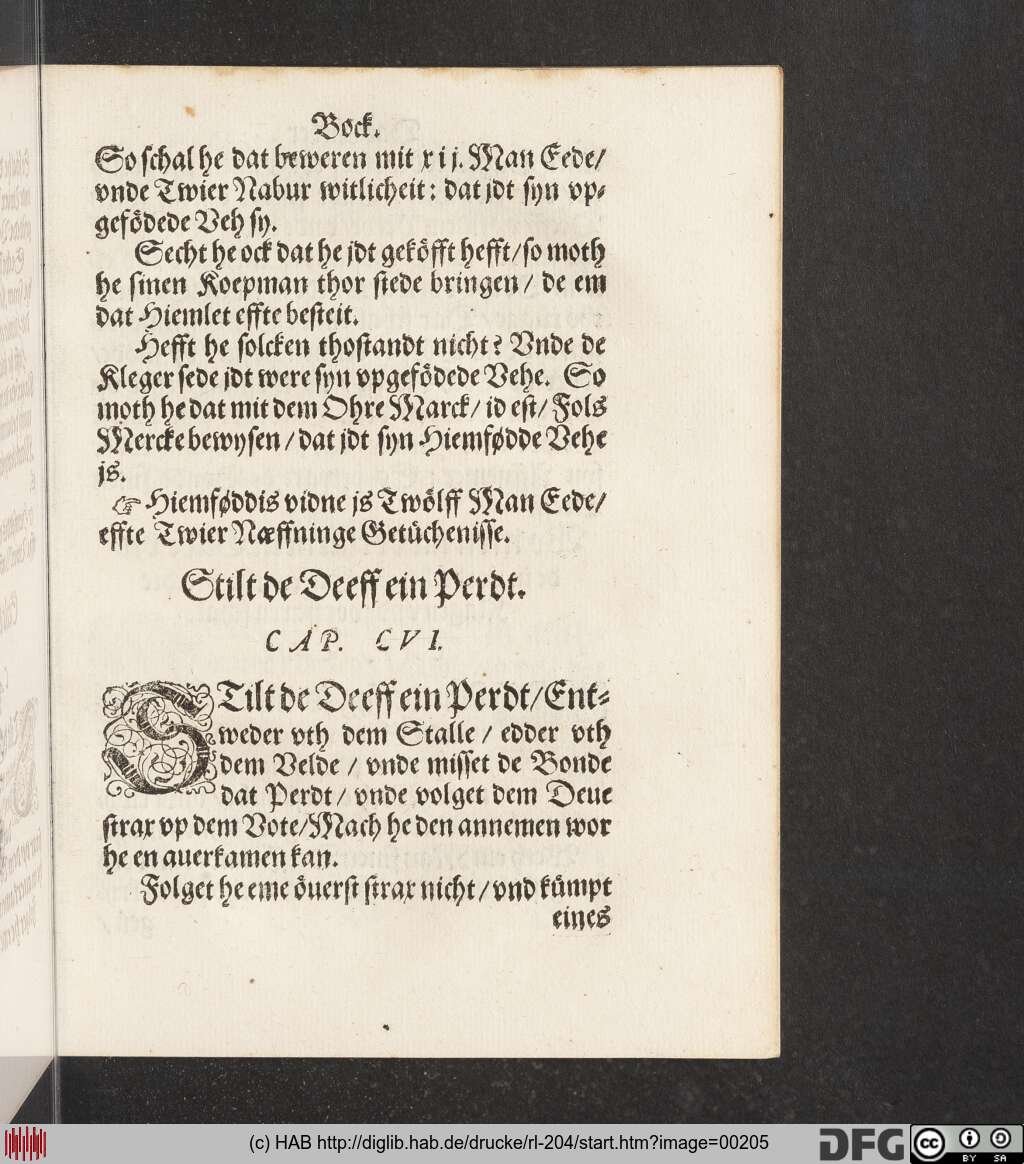 Bock.
So schal he dat beweren mit xij. Man Eede/
vnde Twier Nabur witlicheit: dat jdt syn vp⸗
gefödede Veh sy.
Secht he ock dat he jdt geköfft hefft/so moth
he sinen Koepman thor stede bringen/ de em
dat Hiemlet effte besteit.
Hefft he solcken thostandt nicht? Vnde de
Kleger sede jdt were syn vpgefödede Vehe. So
moth he dat mit dem Ohre Marck/ id est/ Fols
Mercke bewysen/dat jdt syn Hiemfødde Vehe
js.
☞ Hiemføddis vidne js Twölff Man Eede/
effte Twier Næffninge Getüchenisse.
Stilt de Deeff ein Perdt.
CAP. CVI.
STilt de Deeff ein Perdt/Ent⸗
weder vth dem Stalle/ edder vth
dem Velde/ vnde misset de Bonde
dat Perdt/ vnde volget dem Deue
strax vp dem Vote/Mach he den annemen wor
he en auerkamen kan.
Folget he eme öuerst strax nicht/ vnd kümpt
eines
(c) HAB http://diglib.hab.de/drucke/rl-204/start.htm?image=00205
DFG
cc
BY SA